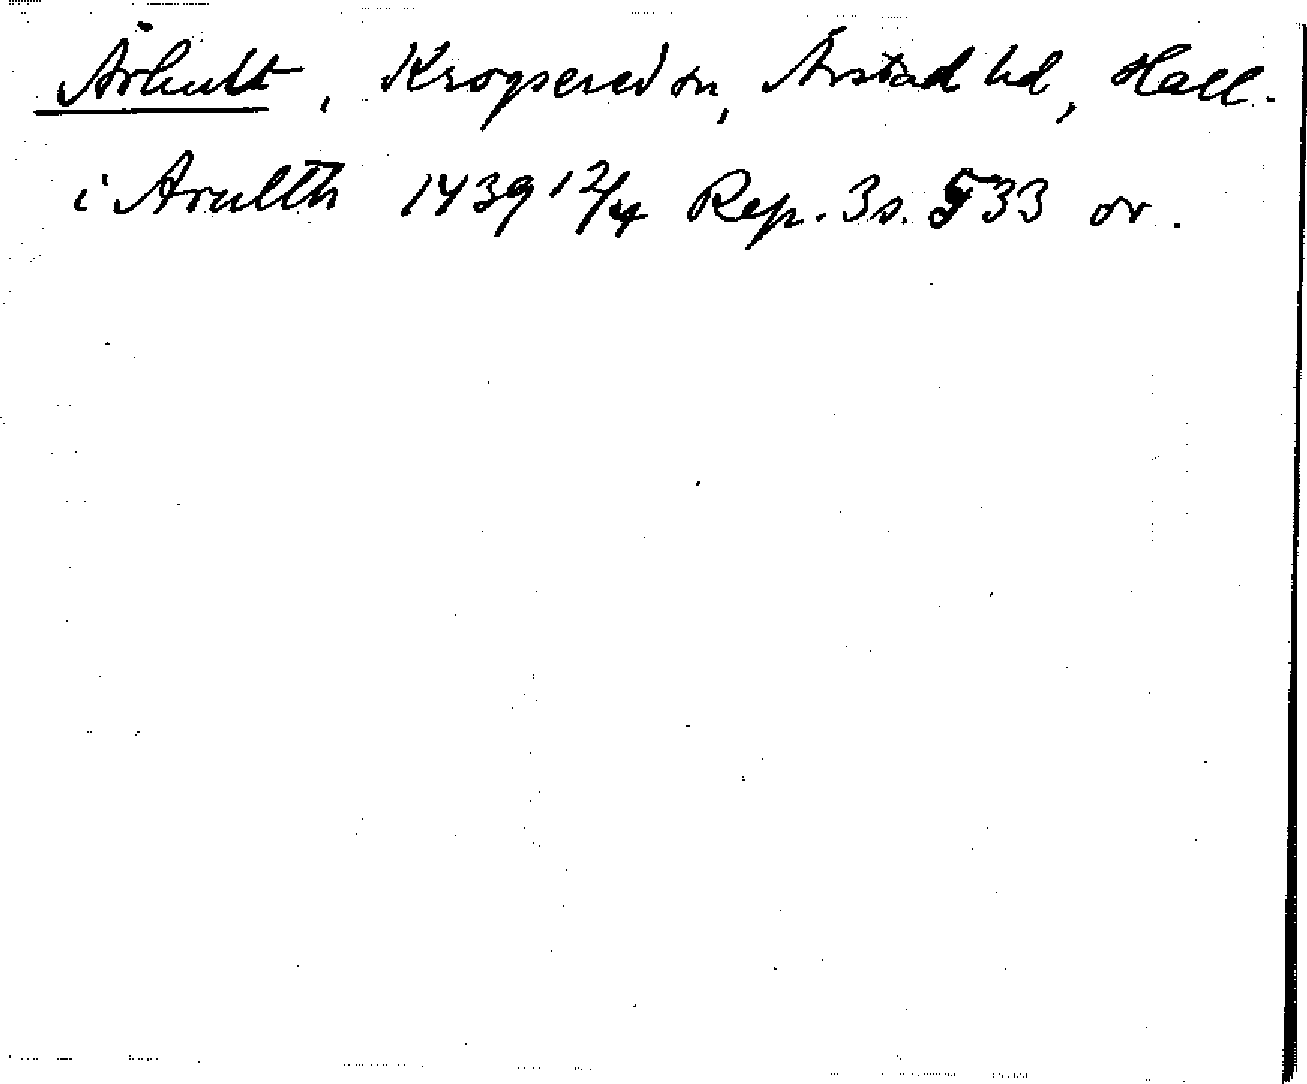 Århult, Krogsered sn, Årstad hd, Hall.
i Arulth 1439 12/4 Rep. 3 s. 533 or.